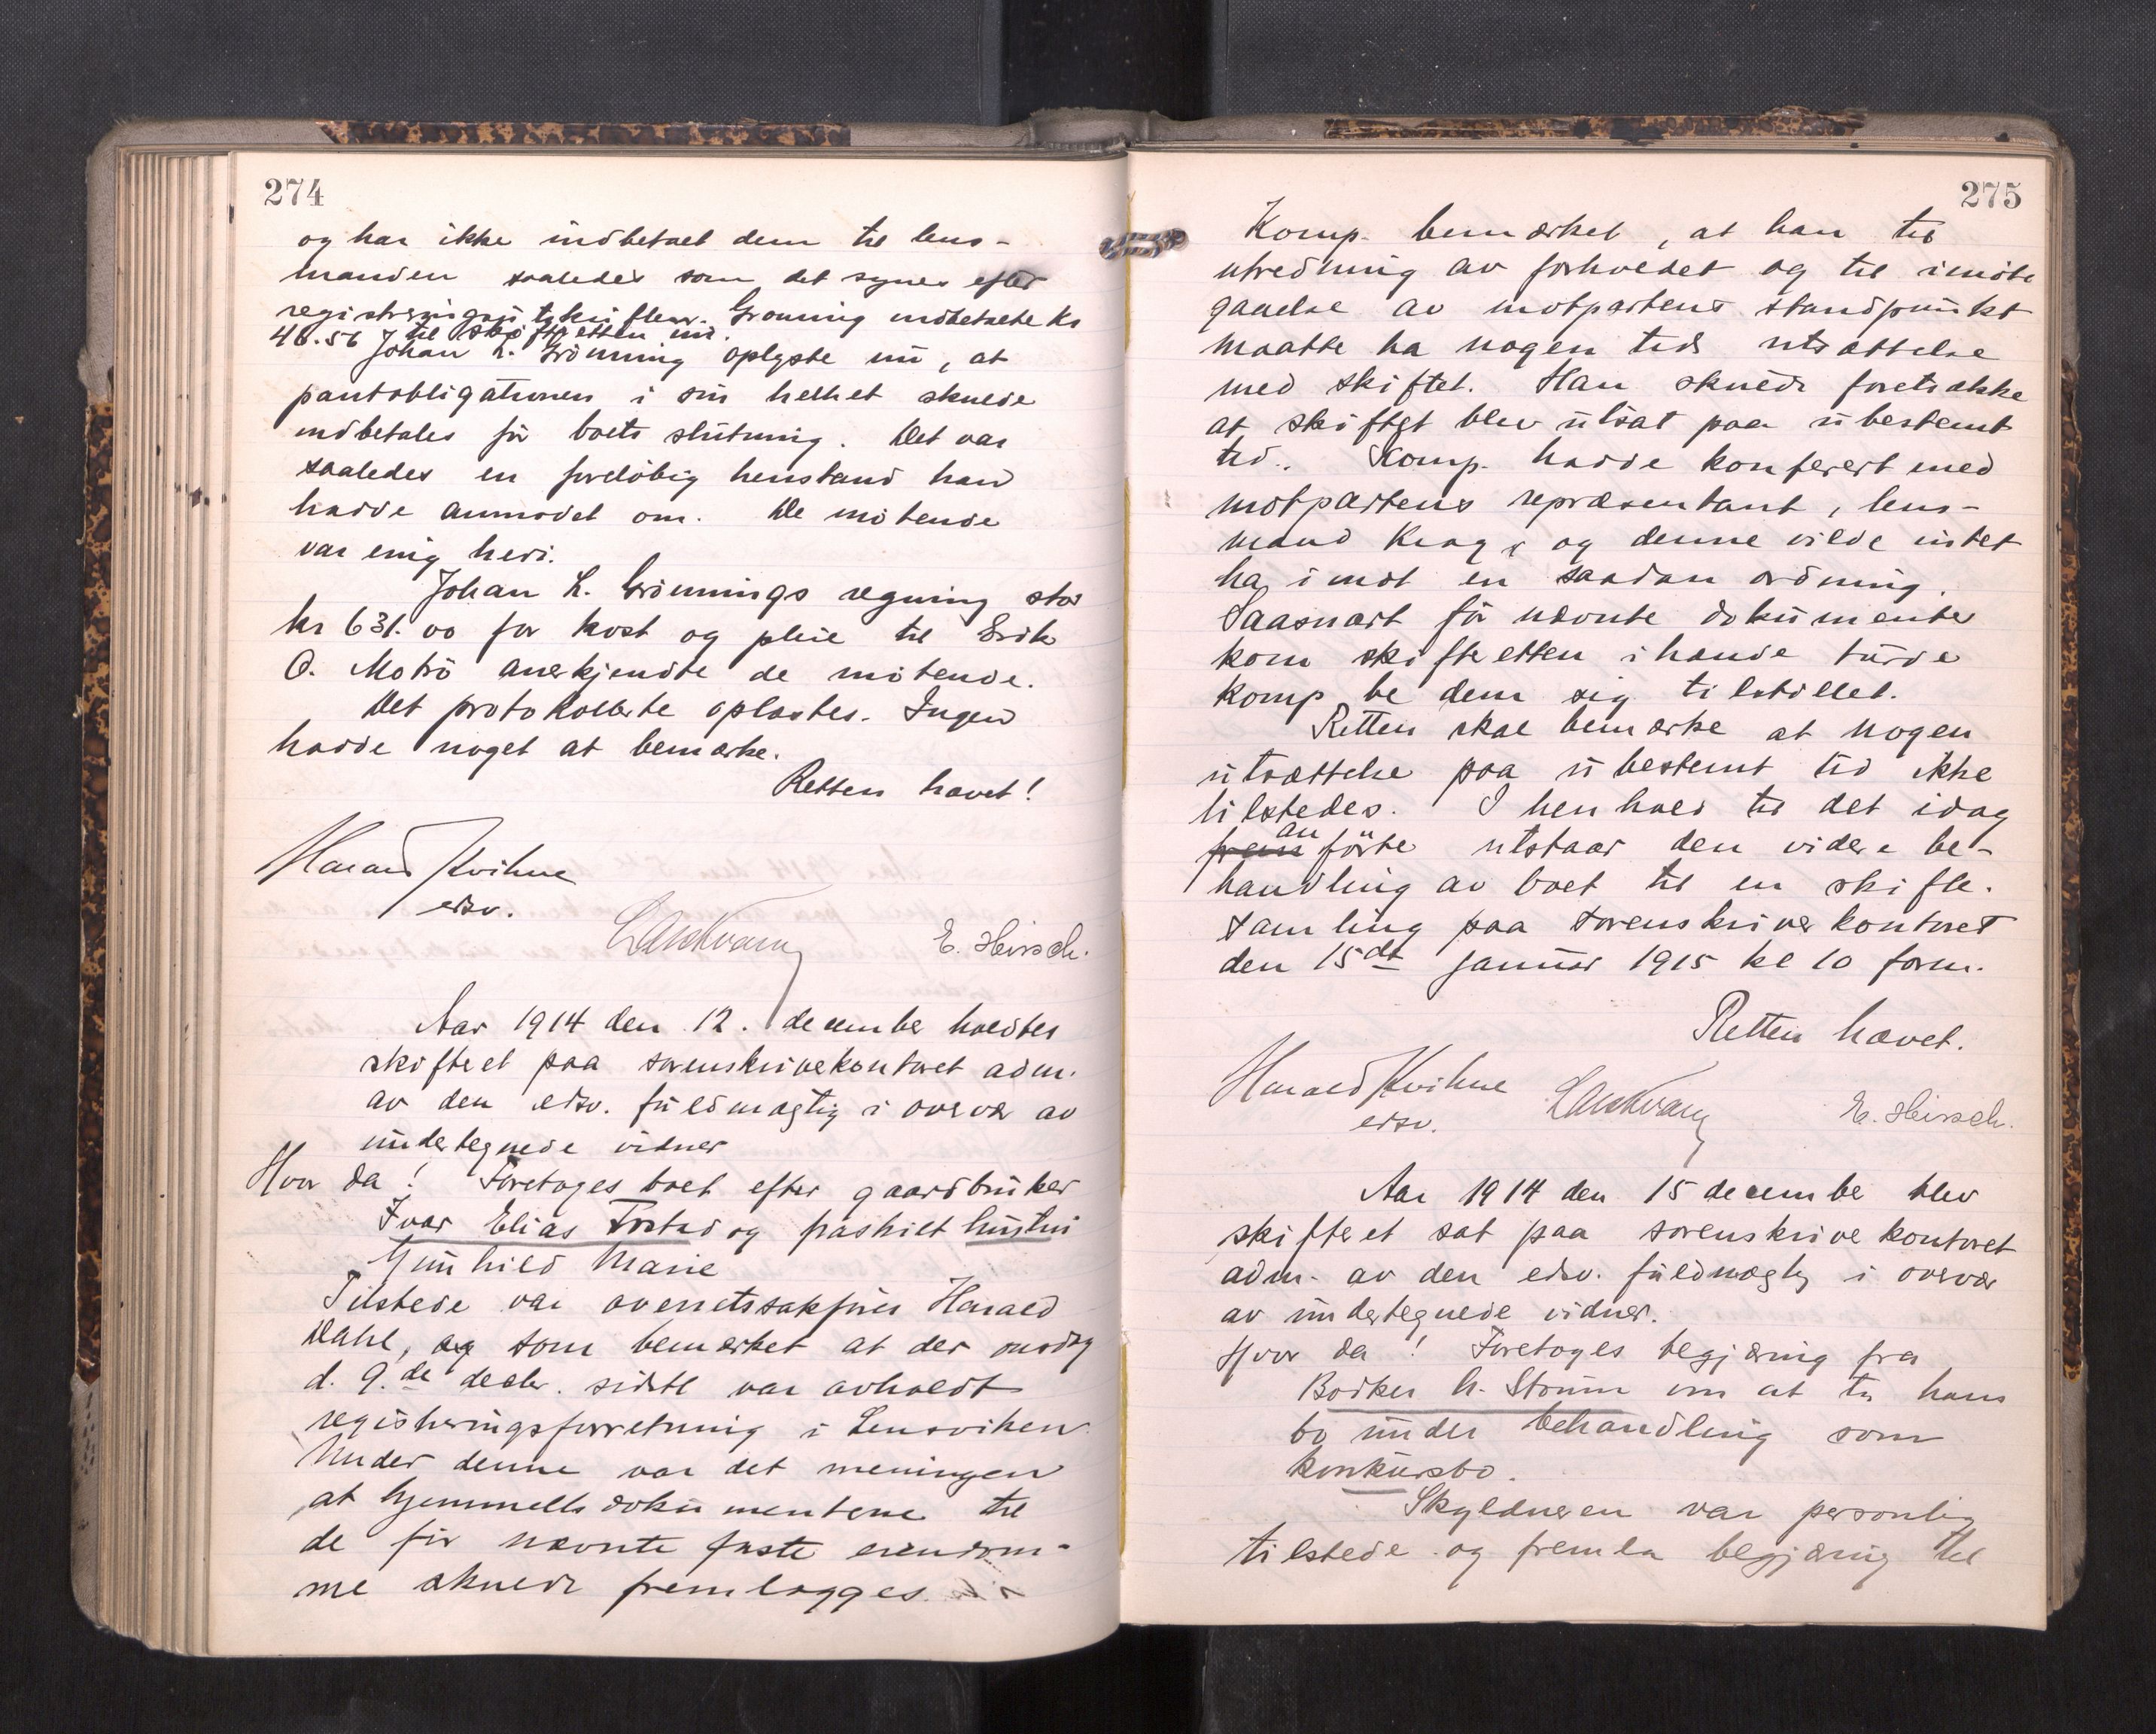 274
og har ikke indbetalt dem til lens-
manden saaledes som det synes efter
registreringsutskriften. Grönning indbetalte kr
48.56 til skifteretten nu.
Johan L. Grönning oplyste nu, at
pantobligationen i sin helhet skulde
indbetales för boets slutning. Det var
saaledes en forelöbig henstand han
hadde anmodet om. De mötende
var enig heri.
Johan L. Grönnings regning stor
kr 631.00 for kost og pleie til Erik
O. Moträ anerkjendte de mötende.
Det protokollerte oplæstes. Ingen
hadde noget at bemærke.
Retten hævet!
Harald Kvihne
edsv.
E. Hirsch.
Aar 1914 den 12. december holdtes
skifteret paa sorenskriverkontoret adm.
av den edsv. fuldmægtig i overvær av
undertegnede vidner
Hvor da! Foretoges boet efter gaardbruker
Ivar Elias og fraskilt hustru
Gunhild Marie
Tilstede var overretssakförer Harald
Dahl, og som bemærket at der onsdag
d. 9.de decbr. sidstl var avholdt
registreringsforretning i Lensviken
Under denne var det meningen
at hjemmelsdokumentene til
de för nævnte faste eiendom-
me skulde fremlægges
275
Komp. bemærket, at han til
utredning av forholdet og til imöte
gaaelse av motpartens standpunkt
maatte ha nogen tids utsættelse
med skiftet. Han skulde foretrække
at skiftet blev utsat paa ubestemt
tid. Komp. hadde konferert med
motpartens repræsentant, lens-
mand Krog, og denne vilde intet
ha imot en saadan ordning.
Saasnart för nævnte dokumenter
kom skifteretten ihænde turde
komp be dem sig tilstillet.
Retten skal bemærke at nogen
utsættelse paa ubestemt tid ikke
tilstedes. I henhold til det idag
an
frem förte utstaar den videre be-
handling av boet til en skifte-
samling paa sorenskriverkontoret
den 15de januar 1915 kl 10 form.
Retten hævet.
Harald Kvihne
edsv.
E. Hirsch.
Aar 1914 den 15 december blev
skifteret sat paa sorenskriverkontoret
adm. av den edsv. fuldmægtig i overvær
av undertegnede vidner.
Hvor da! Foretoges begjæring fra
Bödker H. Ström om at ta hans
bo under behandling som
konkursbo.
Skyldneren var personlig
tilstede og fremla begjæring til